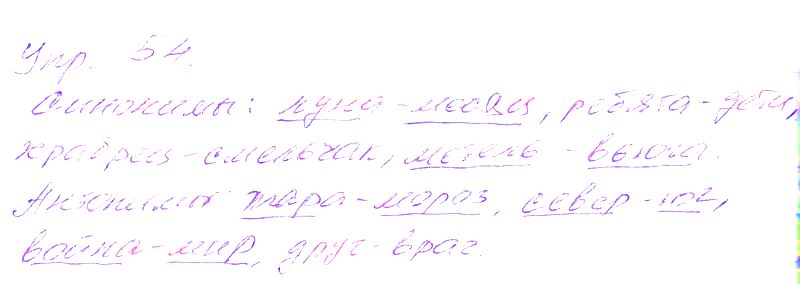 Упр. 54.
Синонимы: луна - месяц, ребята - дети,
храбрец - смельчак, метель - вьюга.
Антонимы: жара - мороз, север - юг,
война - мир, друг - враг.